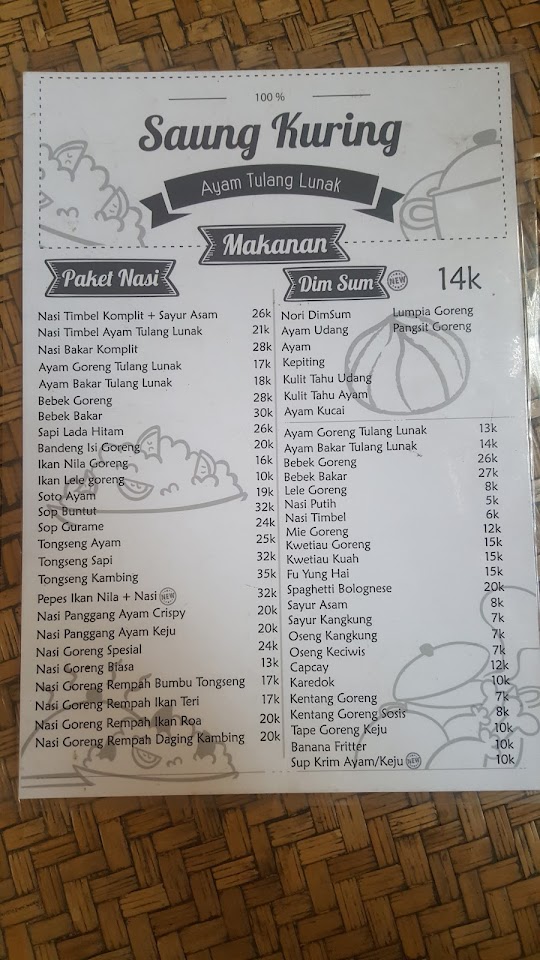 100 %
Saung Kuring
Ayam Tulang Lunak
Makanan
Paket Nasi
Nasi Timbel Komplit + Sayur Asam 26k
Nasi Timbel Ayam Tulang Lunak 21k
Nasi Bakar Komplit 28k
Ayam Goreng Tulang Lunak 17k
Ayam Bakar Tulang Lunak 18k
Bebek Goreng 28k
Bebek Bakar 30k
Sapi Lada Hitam 26k
Bandeng Isi Goreng 20k
Ikan Nila Goreng 16k
Ikan Lele goreng 10k
Soto Ayam 19k
Sop Buntut 32k
Sop Gurame 24k
Tongseng Ayam 25k
Tongseng Sapi 32k
Tongseng Kambing 35k
Pepes Ikan Nila + Nasi NEW 32k
Nasi Panggang Ayam Crispy 20k
Nasi Panggang Ayam Keju 20k
Nasi Goreng Spesial 24k
Nasi Goreng Biasa 13k
Nasi Goreng Rempah Bumbu Tongseng 17k
Nasi Goreng Rempah Ikan Teri 17k
Nasi Goreng Rempah Ikan Roa 20k
Nasi Goreng Rempah Daging Kambing 20k
Dim Sum NEW 14k
Nori DimSum Lumpia Goreng
Ayam Udang Pangsit Goreng
Ayam
Kepiting
Kulit Tahu Udang
Kulit Tahu Ayam
Ayam Kucai
Ayam Goreng Tulang Lunak 13k
Ayam Bakar Tulang Lunak 14k
Bebek Goreng 26k
Bebek Bakar 27k
Lele Goreng 8k
Nasi Putih 5k
Nasi Timbel 6k
Mie Goreng 12k
Kwetiau Goreng 15k
Kwetiau Kuah 15k
Fu Yung Hai 15k
Spaghetti Bolognese 20k
Sayur Asam 8k
Sayur Kangkung 7k
Oseng Kangkung 7k
Oseng Keciwis 7k
Capcay 12k
Karedok 10k
Kentang Goreng 7k
Kentang Goreng Sosis 8k
Tape Goreng Keju 10k
Banana Fritter 10k
Sup Krim Ayam/Keju NEW 10k